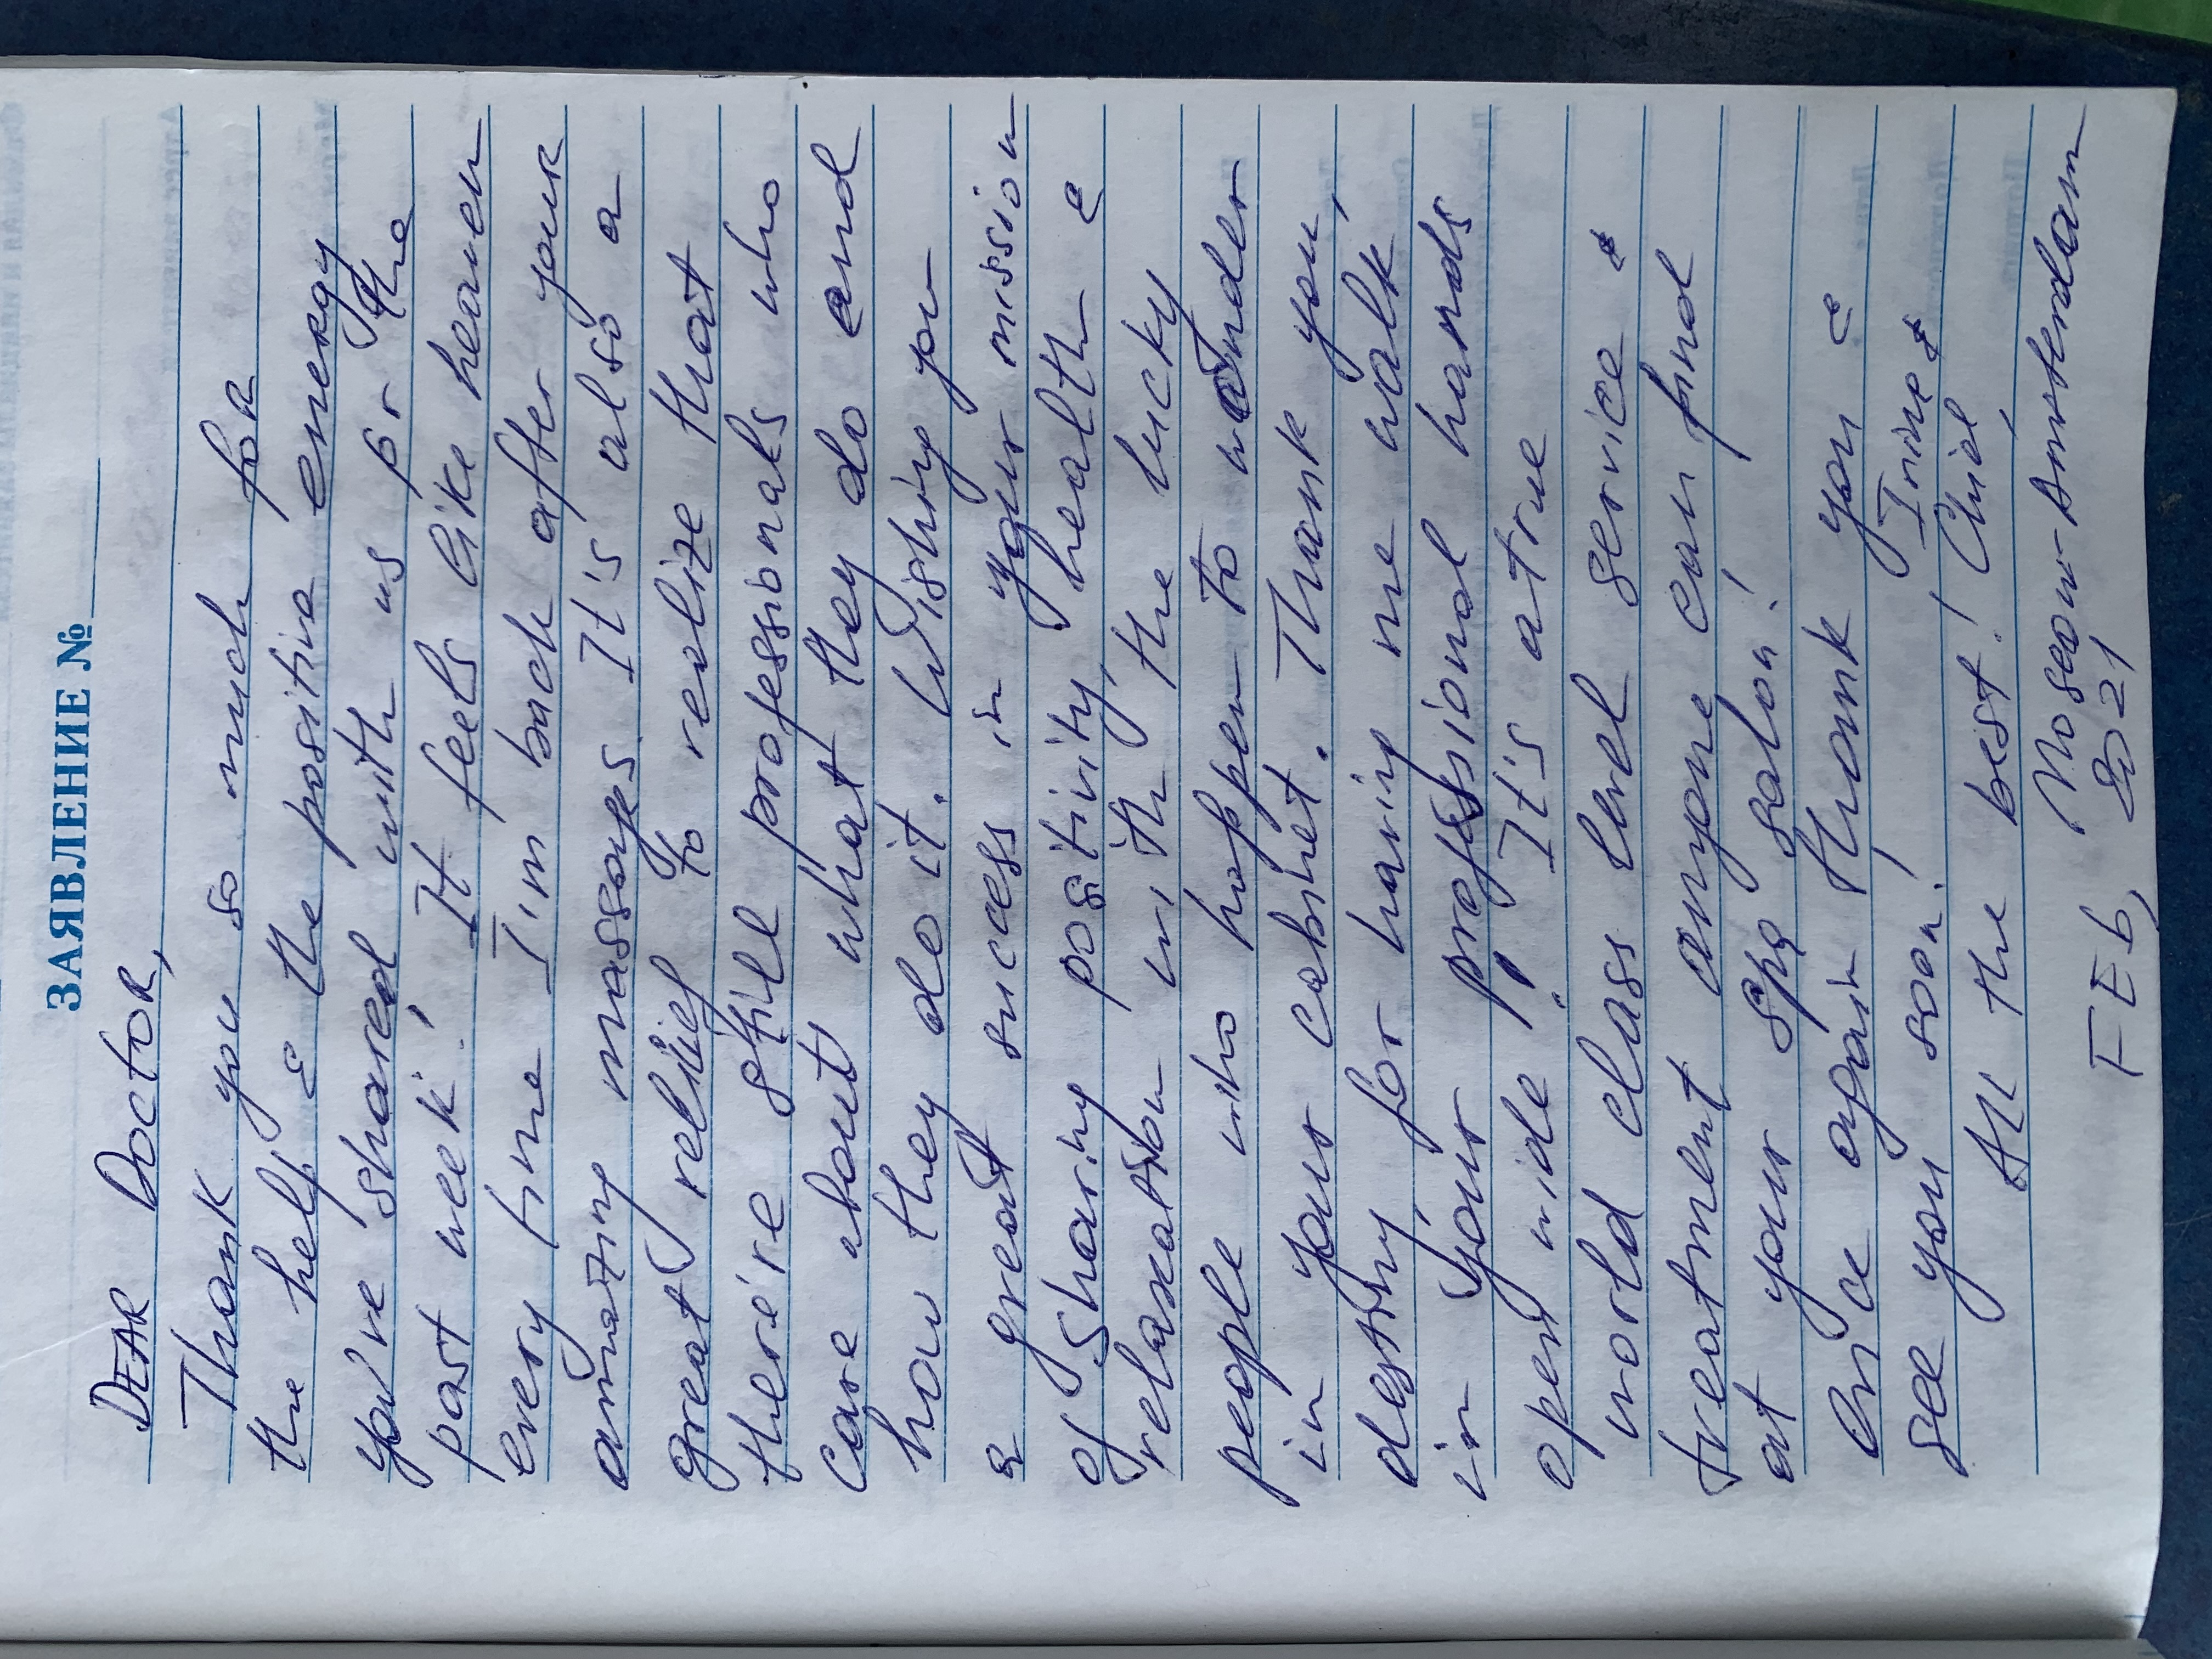 ЗАЯВЛЕНИЕ №
DEAR DOCTOR,
Thank you so much for
the help & the positive energy
you've shared with us for the
past week! It feels like heaven
every time I'm back after your
amazing massages. It's also a
great relief to realize that
there're still professionals who
care about what they do and
how they do it. Wishing you
a great success in your mission
of sharing positivity, health &
relaxation with the lucky
people who happen to wander
in your cabinet. Thank you,
destiny, for having me walk
in your professional hands
open wide! It's a true
world class level service &
treatment anyone can find
at your spa salon!
Once again thank you &
see you soon!
All the best! &
Moscow-Amsterdam
FEb, 2021